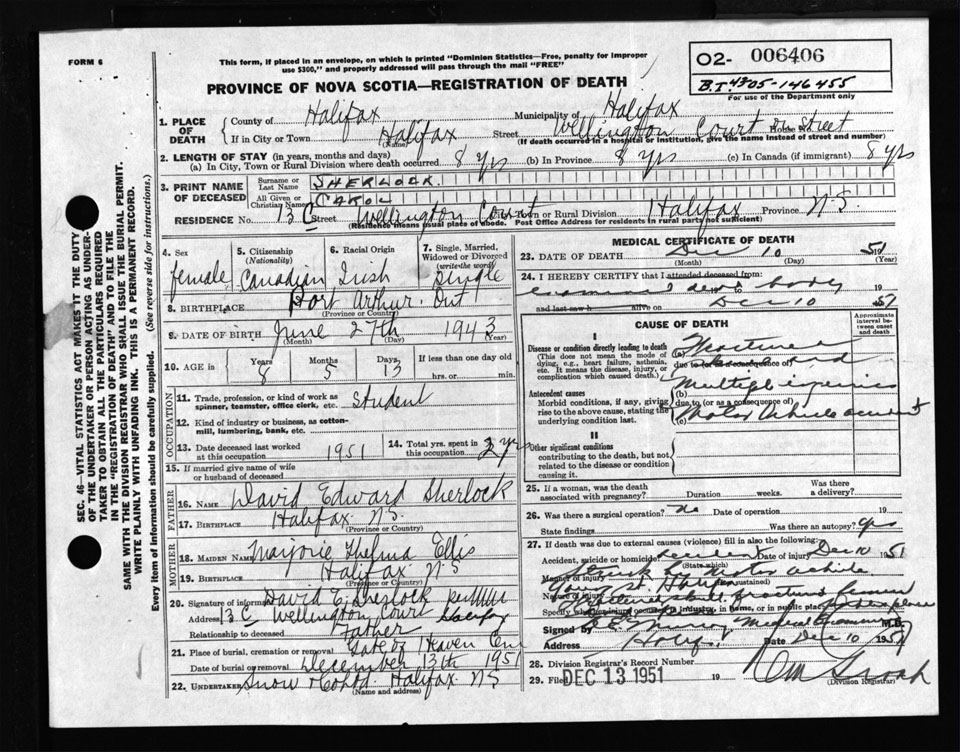 FORM 6
This form, if placed in an envelope, on which is printed "Dominion Statistics—Free, penalty for improper
use $300," and properly addressed will pass through the mail "FREE"
02- 006406
B.T 4305-146455
For use of the Department only
PROVINCE OF NOVA SCOTIA—REGISTRATION OF DEATH
SEC. 46—VITAL STATISTICS ACT MAKES IT THE DUTY
OF THE UNDERTAKER OR PERSON ACTING AS UNDER-
TAKER TO OBTAIN ALL THE PARTICULARS REQUIRED
IN THE "REGISTRATION OF DEATH" AND TO FILE THE
SAME WITH THE DIVISION REGISTRAR WHO SHALL ISSUE THE BURIAL PERMIT.
WRITE PLAINLY WITH UNFADING INK. THIS IS A PERMANENT RECORD.
Every item of information should be carefully supplied. (See reverse side for instructions.)
1. PLACE OF DEATH
County of Halifax Municipality of Halifax
If in City or Town Halifax (Name) Street Wellington Court on street House No.
(If death occurred in a hospital or institution, give the name instead of street and number)
2. LENGTH OF STAY (in years, months and days)
(a) In City, Town or Rural Division where death occurred 8 yrs (b) In Province 8 yrs (c) In Canada (if immigrant) 8 yrs
3. PRINT NAME OF DECEASED
Surname or Last Name SHERLOCK.
All Given or Christian Names CAROL
RESIDENCE No. 73 C Street Wellington Court Town or Rural Division Halifax Province N.S.
(Residence means usual place of abode. Post Office Address for residents in rural parts not sufficient)
4. Sex female
5. Citizenship (Nationality) Canadian
6. Racial Origin Irish
7. Single, Married, Widowed or Divorced (write the word) Single
8. BIRTHPLACE Port Arthur. Ont
(Province or Country)
9. DATE OF BIRTH June 27th 1943
(Month) (Day) (Year)
10. AGE in Years 8 Months 5 Days 13 If less than one day old hrs. or min.
OCCUPATION
11. Trade, profession, or kind of work as
spinner, teamster, office clerk, etc. Student
12. Kind of industry or business, as cotton-
mill, lumbering, bank, etc.
13. Date deceased last worked at this occupation 1951
14. Total yrs. spent in this occupation 2 yrs
15. If married give name of wife
or husband of deceased
FATHER
16. NAME David Edward Sherlock
17. BIRTHPLACE Halifax N.S.
(Province or Country)
MOTHER
18. MAIDEN NAME Marjorie Thelma Ellis
19. BIRTHPLACE Halifax N.S
(Province or Country)
20. Signature of informant David E. Sherlock
Address 73 C Wellington Court Halifax
Relationship to deceased Father
21. Place of burial, cremation or removal Gate of Heaven Cem
Date of burial or removal December 13th 1951
22. UNDERTAKER Snow & Co Ltd. Halifax NS
(Name and address)
MEDICAL CERTIFICATE OF DEATH
23. DATE OF DEATH Dec 10 51
(Month) (Day) (Year)
24. I HEREBY CERTIFY that I attended deceased from:
examined dead body 19
and last saw h alive on Dec 10 1951
CAUSE OF DEATH
Approximate interval between onset and death
I
Disease or condition directly leading to death
(This does not mean the mode of
dying, e.g., heart failure, asthenia,
etc. It means the disease, injury, or
complication which caused death.)
(a)
due to (or as a consequence of) and
Antecedent causes
Morbid conditions, if any, giving
rise to the above cause, stating the
underlying condition last.
(b) Multiple injuries
due to (or as a consequence of)
(c) Motor Vehicle accident
II
Other significant conditions
contributing to the death, but not
related to the disease or condition
causing it.
25. If a woman, was the death
associated with pregnancy? Duration weeks. Was there a delivery?
26. Was there a surgical operation? No Date of operation 19
State findings Was there an autopsy? yes
27. If death was due to external causes (violence) fill in also the following:
Accident, suicide or homicide Accident Date of injury Dec 10 1951
(State which)
Manner of injury Struck by Motor vehicle
(How sustained)
Nature of injury skull, fractured femur
Specify whether injury occurred in industry, in home, or in public place
Signed by Medical Examiner M.D.
Address Date Dec 10 1951
28. Division Registrar's Record Number
29. Filed DEC 13 1951 19
(Division Registrar)